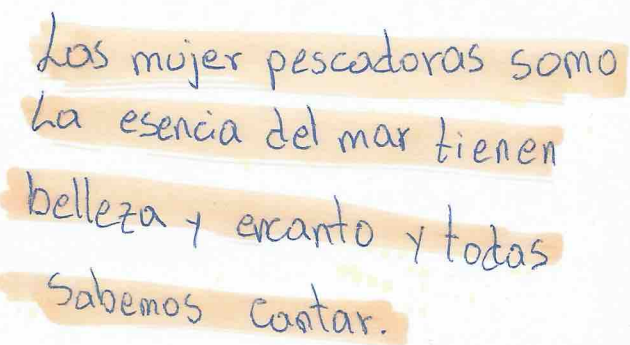 Las mujer pescadoras somo
La esencia del mar tienen
belleza y encanto y todas
Sabemos cantar.